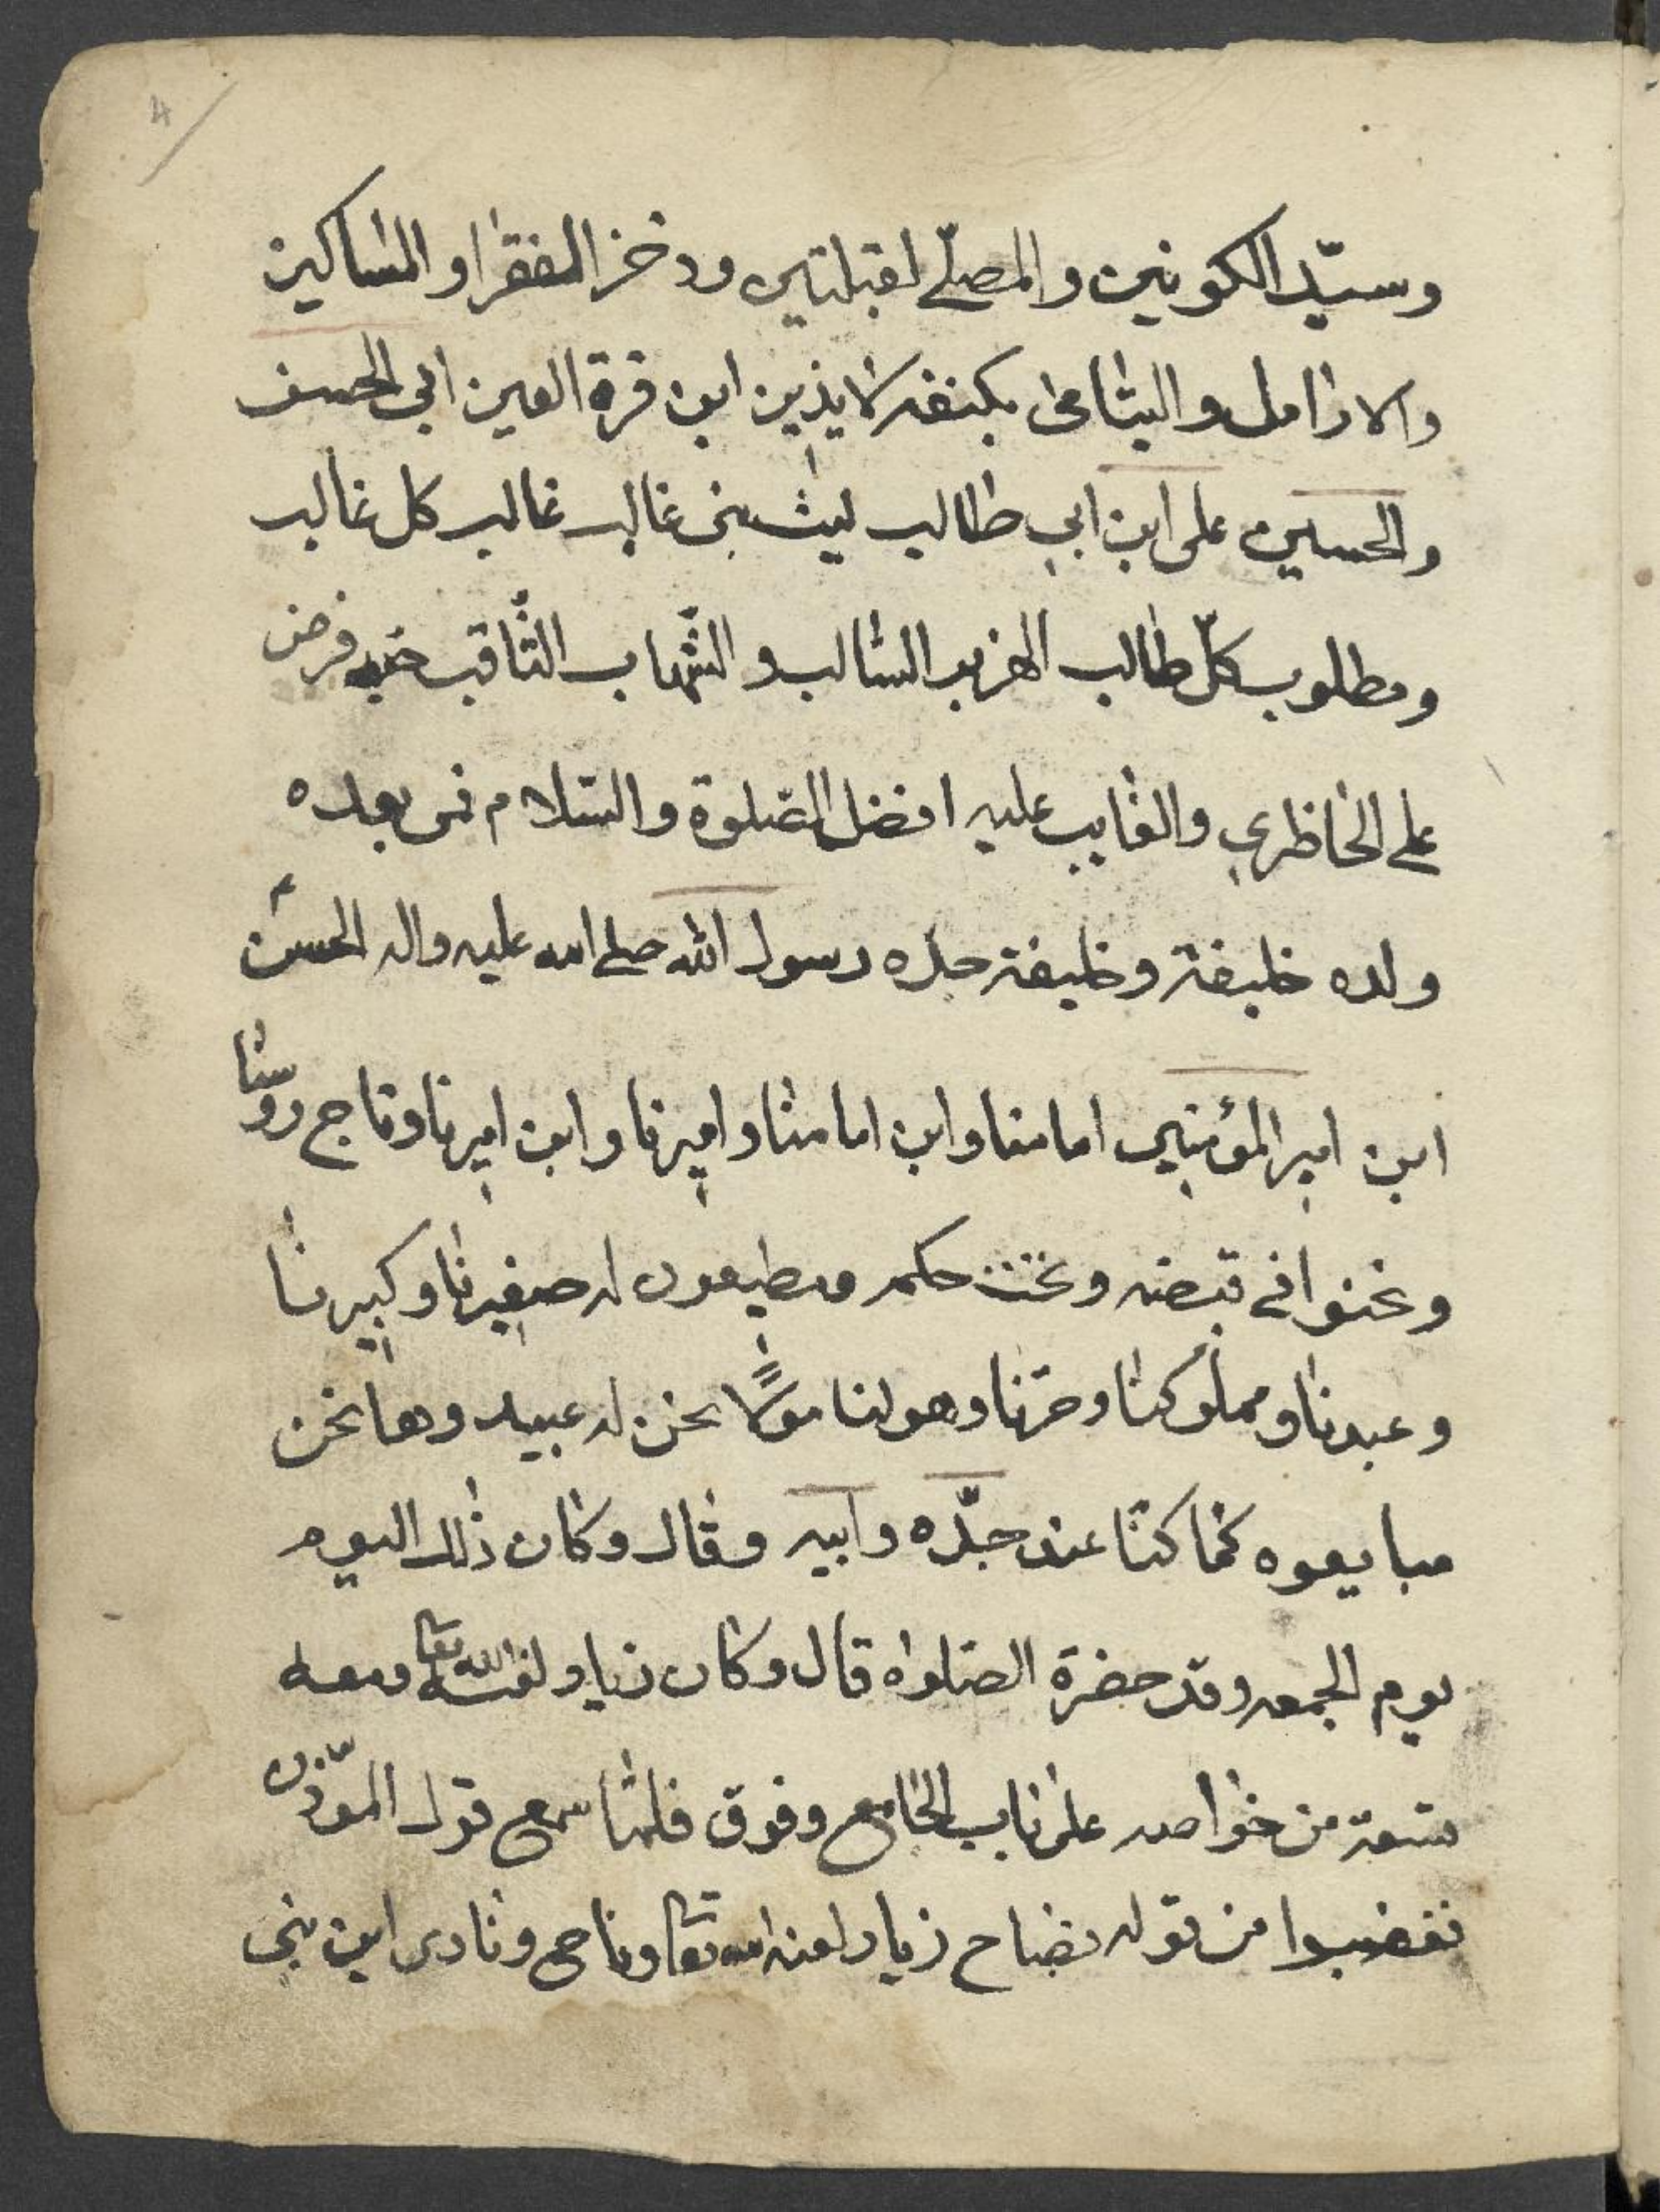 4
وسيّد الكونين والمصلّے لقبلتين وذخر الفقرا والمساكين
والارامل واليتامى بكنفه لايذين ابن قرة العين ابى الحسن
والحسين على ابن ابي طالب ليث بنى غالب غالب كل غالب
ومطلوب كلّ طالب الهزبر السالب والشّهاب الثّاقب حبه فرض
على الحاظرين والغايب عليه افضل الصّلوة والسّلام فمن بعده
ولده خليفة وخليفة جدّه رسول الله صلے الله عليه واله الحسن
ابن امير المؤمنين امامنا وابن امامنا واميرنا وابن اميرنا وتاج روسنا
ونحنوا في قبضه وتحت حكمه ومطيعون له صغيرنا وكبيرنا
وعبدنا ومملوكنا وحرّنا وهو لنا مولاً نحن له عبيد وها نحن
مبايعوه كما كنّا عند جدّه وابيه وقال وكان ذلك اليوم
يوم الجمعه وقد حضرة الصلواة قال وكان زياد لعنه الله تعا ومعه
تسعة من خواصه على باب الجامع وفوق فلمّا سمع قول الموّذن
فغضبوا من قوله فصاح زياد لعنه الله تعا وناحى ونادى اين بنى